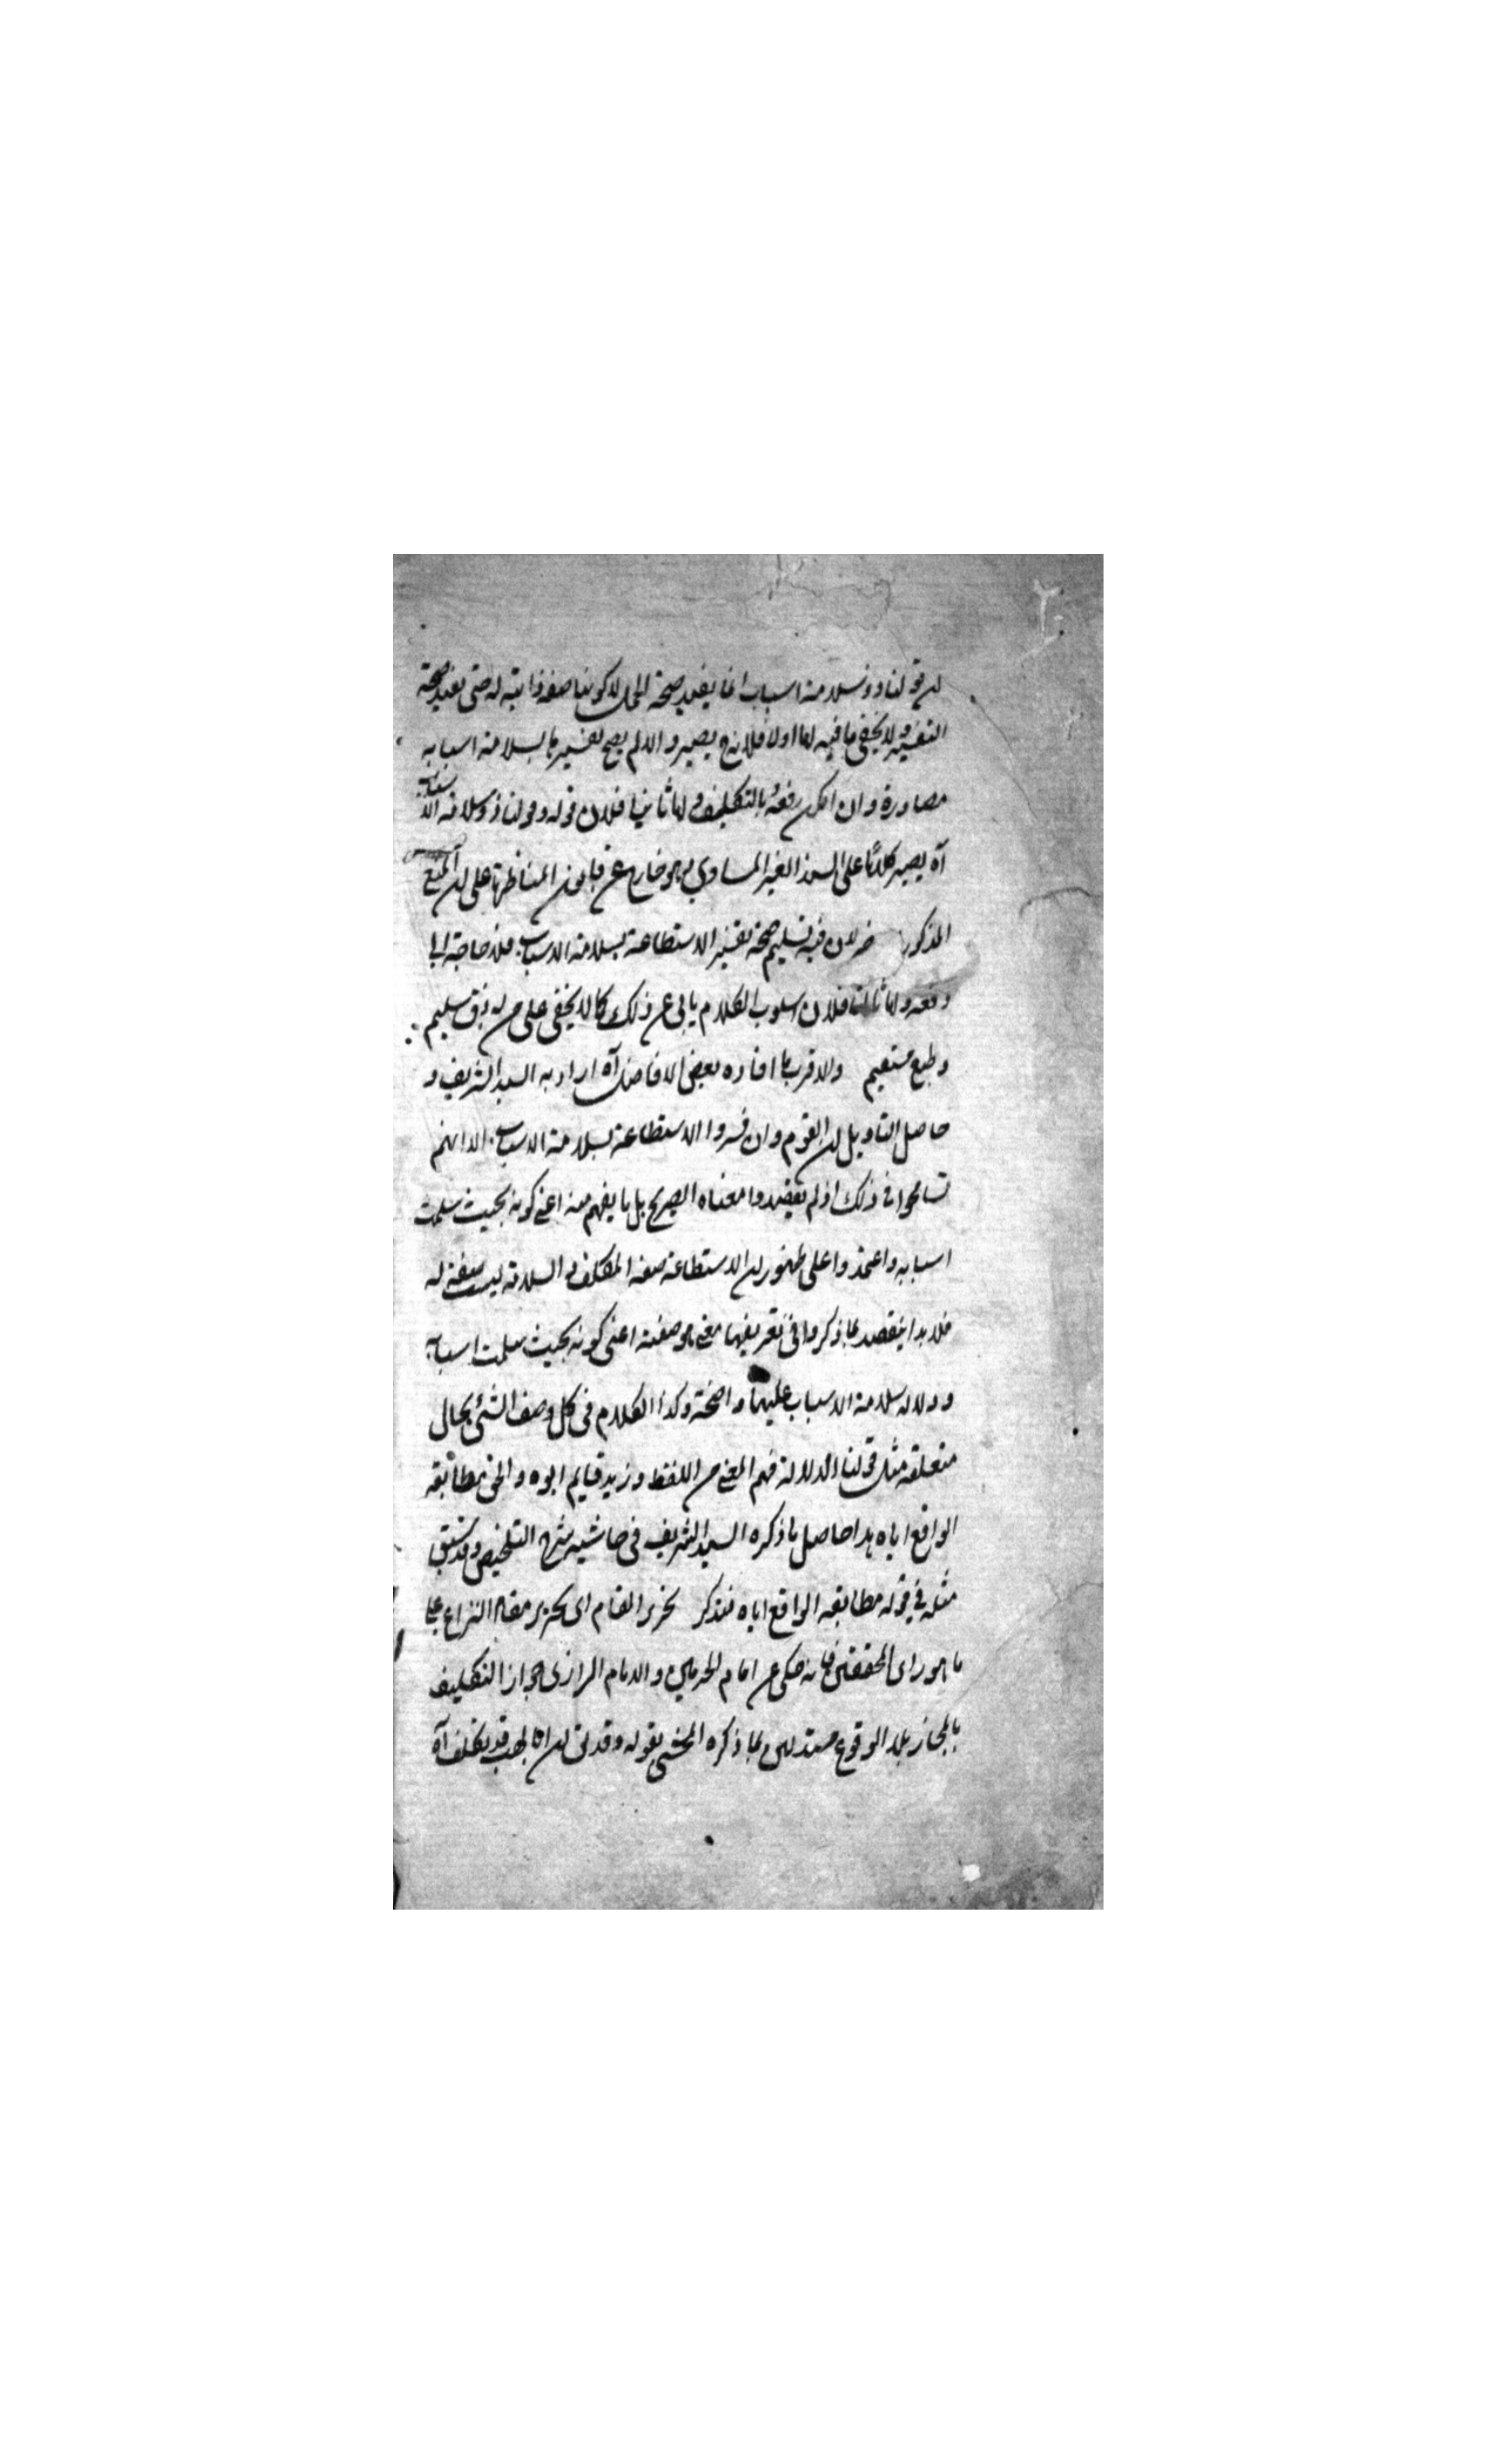 لان قولنا ذو سلامة اسباب انما يفيد صحة الحمل لا كونها صفة ذاتية له حتى يفيد صحة
التفسير ولا يخفى ما فيه اما اولا فلانه ح يصير والا لم يصح تفسيرها بسلامة اسبابه
مصادرة وان امكن رفعه بالتكليف واما ثانيا فلان قوله وقولنا ذو سلامة الاسباب
آه يصير كلاما على السند الغير المساوي وهو خارج عن قانون المناظرة على ان المنع
المذكور ح لان فيه تسليم صحة تفسير الاستطاعة بسلامة الاسباب فلا حاجة الى
دفعه واما ثالثا فلان اسلوب الكلام يابى عن ذلك كما لا يخفى على من له ذوق سليم
وطبع مستقيم والاقرب ما افاده بعض الافاضل آه اراد به السيد الشريف و
حاصل التاويل ان القوم وان فسروا الاستطاعة بسلامة الاسباب الا انهم
تسامحوا في ذلك اذ لم يقصدوا معناه الصريح بل ما يفهم منه اعني كونه بحيث سلمت
اسبابه واعتمدوا على ظهور ان الاستطاعة صفة المكلف والسلامة ليست صفة له
فلا بد ان يقصد بما ذكروا في تعريفها معنى هو صفته اعني كونه بحيث سلمت اسبابه
ودلالة سلامة الاسباب عليها واضحة وكذا الكلام في كل وصف الشئ بحال
متعلقه مثل قولنا الدلالة فهم المعنى من اللفظ وزيد قايم ابوه والحق مطابقة
الواقع اياه هذا حاصل ما ذكره السيد الشريف في حاشية شرح التلخيص وقد سبق
مثله في قوله مطابقة الواقع اياه فتذكر تحرير المقام اى تحرير مقام النزاع على
ما هو راى المحققين فانه حكى عن امام الحرمين والامام الرازى جواز التكليف
بالمحاز بلا الوقوع مستدلين بما ذكره المحشى بقوله وقد ان ابا لهب قد كلف آه